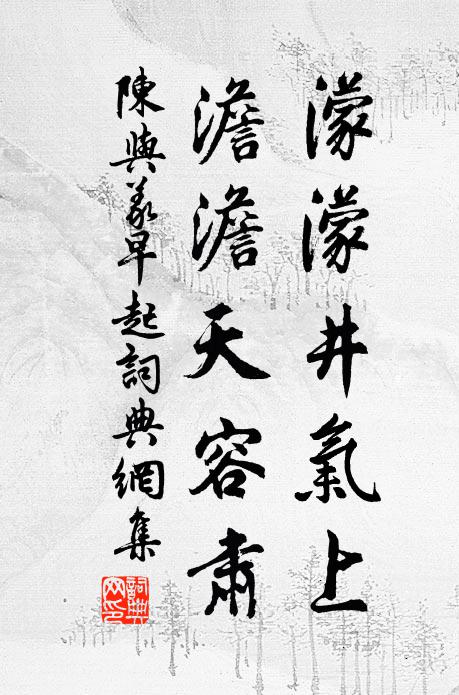 濛濛井氣上
澹澹天容肅
陳與義早起詞典網集
詞典網印